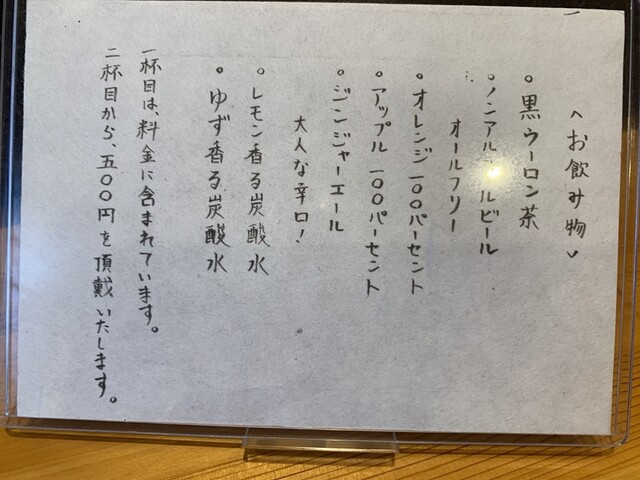 〈お飲み物〉
◦黒ウーロン茶
◦ノンアルコールビール
オールフリー
◦オレンジ一〇〇パーセント
◦アップル一〇〇パーセント
◦ジンジャーエール
大人な辛口！
◦レモン香る炭酸水
◦ゆず香る炭酸水
一杯目は、料金に含まれています。
二杯目から、五〇〇円を頂戴いたします。